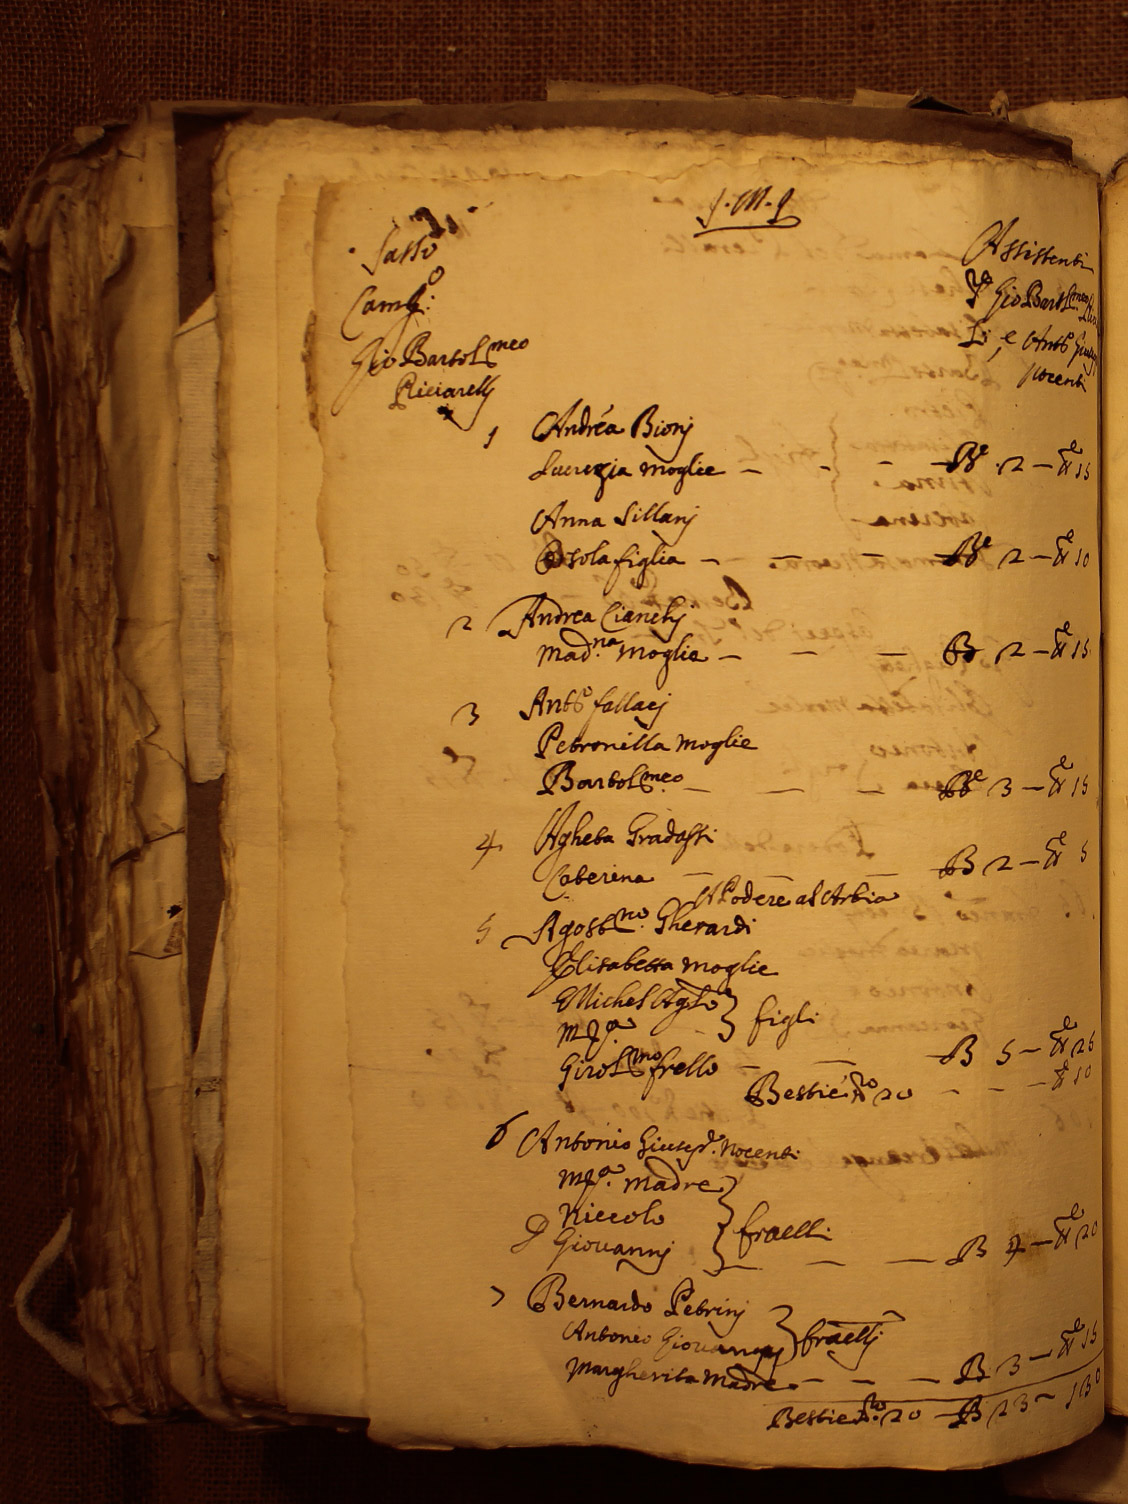 J. M. J
Sasso
Camp:º
Gio Bartolmeo
Riciarelli
Assistenti
Gio Bartolmeo
e Antº
Nocenti
1 Andrea Bionj
Lucrezia moglie — Be 2 — 15
Anna Sillanj
Orsola figlia — Be 2 — 10
2 Andrea Cianchj
Madna moglie — B 2 — 15
3 Antº fallacj
Petronilla moglie
Bartolmeo — Be 3 — 15
4 Agheta Gradassi
Caterina — B 2 — 5
Al Podere al Arbia
5 Agostno Gherardi
Elisabetta moglie
Michel Aglo } figli
Mª
Girolmo frello — B 5 — 26
Bestie No 20 — 10
6 Antonio Giusepe Nocenti
Mª. Madre
Niccolo } fraelli
Giovannj — B 4 — 20
7 Bernardo Petrinj
Antonio Giovannj } fraellj
Margherita Madre — B 3 — 15
Bestie No. 20 — B 23 — 130